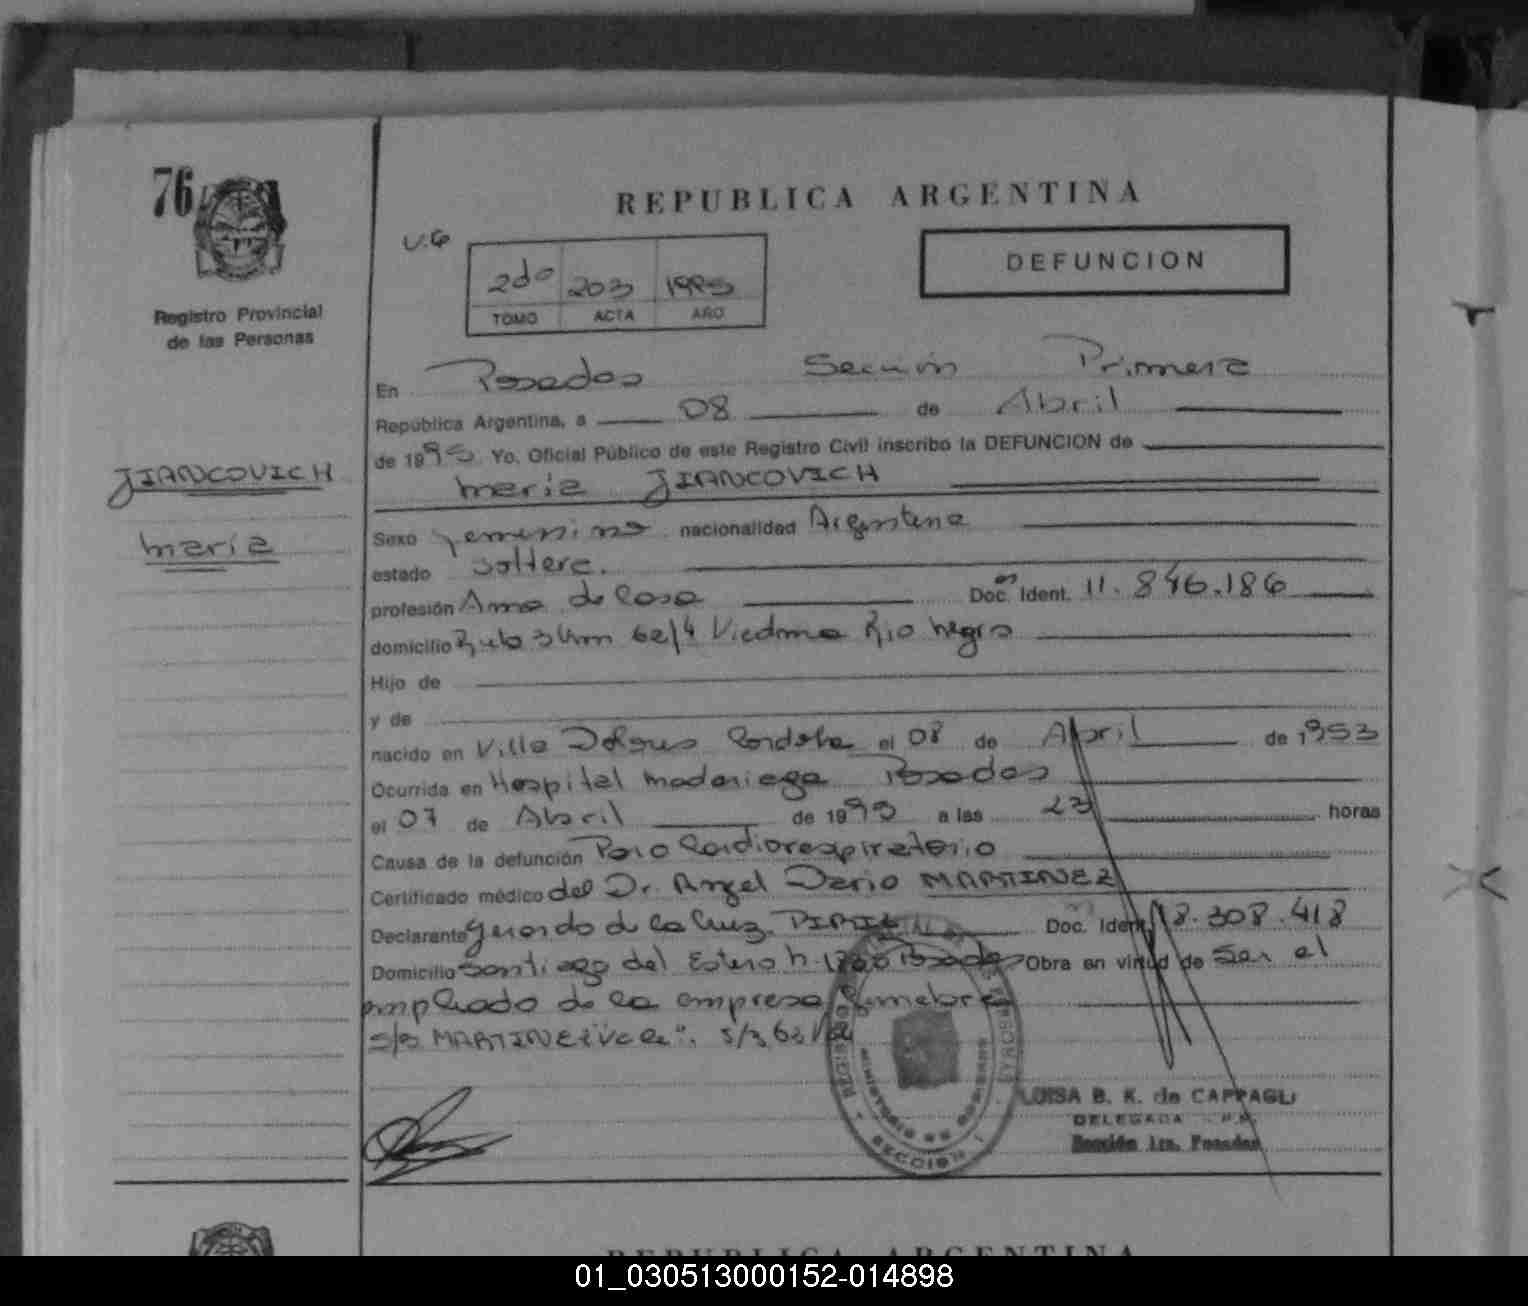 76
REPUBLICA ARGENTINA
V.G
DEFUNCION
2do 203 1995
TOMO ACTA AÑO
Registro Provincial
de las Personas
En Posadas Sección Primera
República Argentina, a 08 de Abril
de 1995 Yo, Oficial Público de este Registro Civil inscribo la DEFUNCION de
JIANCOVICH
maria JIANCOVICH
maria
Sexo femenino nacionalidad Argentina
estado soltera.
profesión Ama de Casa Doc. Ident. 11.846.186
domicilio Ruta 3 Km 62/4 Viedma Rio Negro
Hijo de
y de
nacido en Villa Dolores Cordoba el 08 de Abril de 1953
Ocurrida en Hospital madariaga Posadas
el 07 de Abril de 1995 a las 23 horas
Causa de la defunción Paro Cardiorespiratorio
Certificado médico del Dr. Angel Dario MARTINEZ
Declarante Gerardo de la Cruz Doc. Ident. 18.308.418
Domicilio Santiago del Estero Posadas Obra en virtud de Ser el
empleado de la empresa funebre
S/B. MARTINEZ
LUISA B. K. de CAPPAGLI
DELEGADA
Sección 1ra. Posadas
REGISTRO
MINISTERIO DE GOBIERNO
SECCION 1
REPUBLICA ARGENTINA
01_030513000152-014898